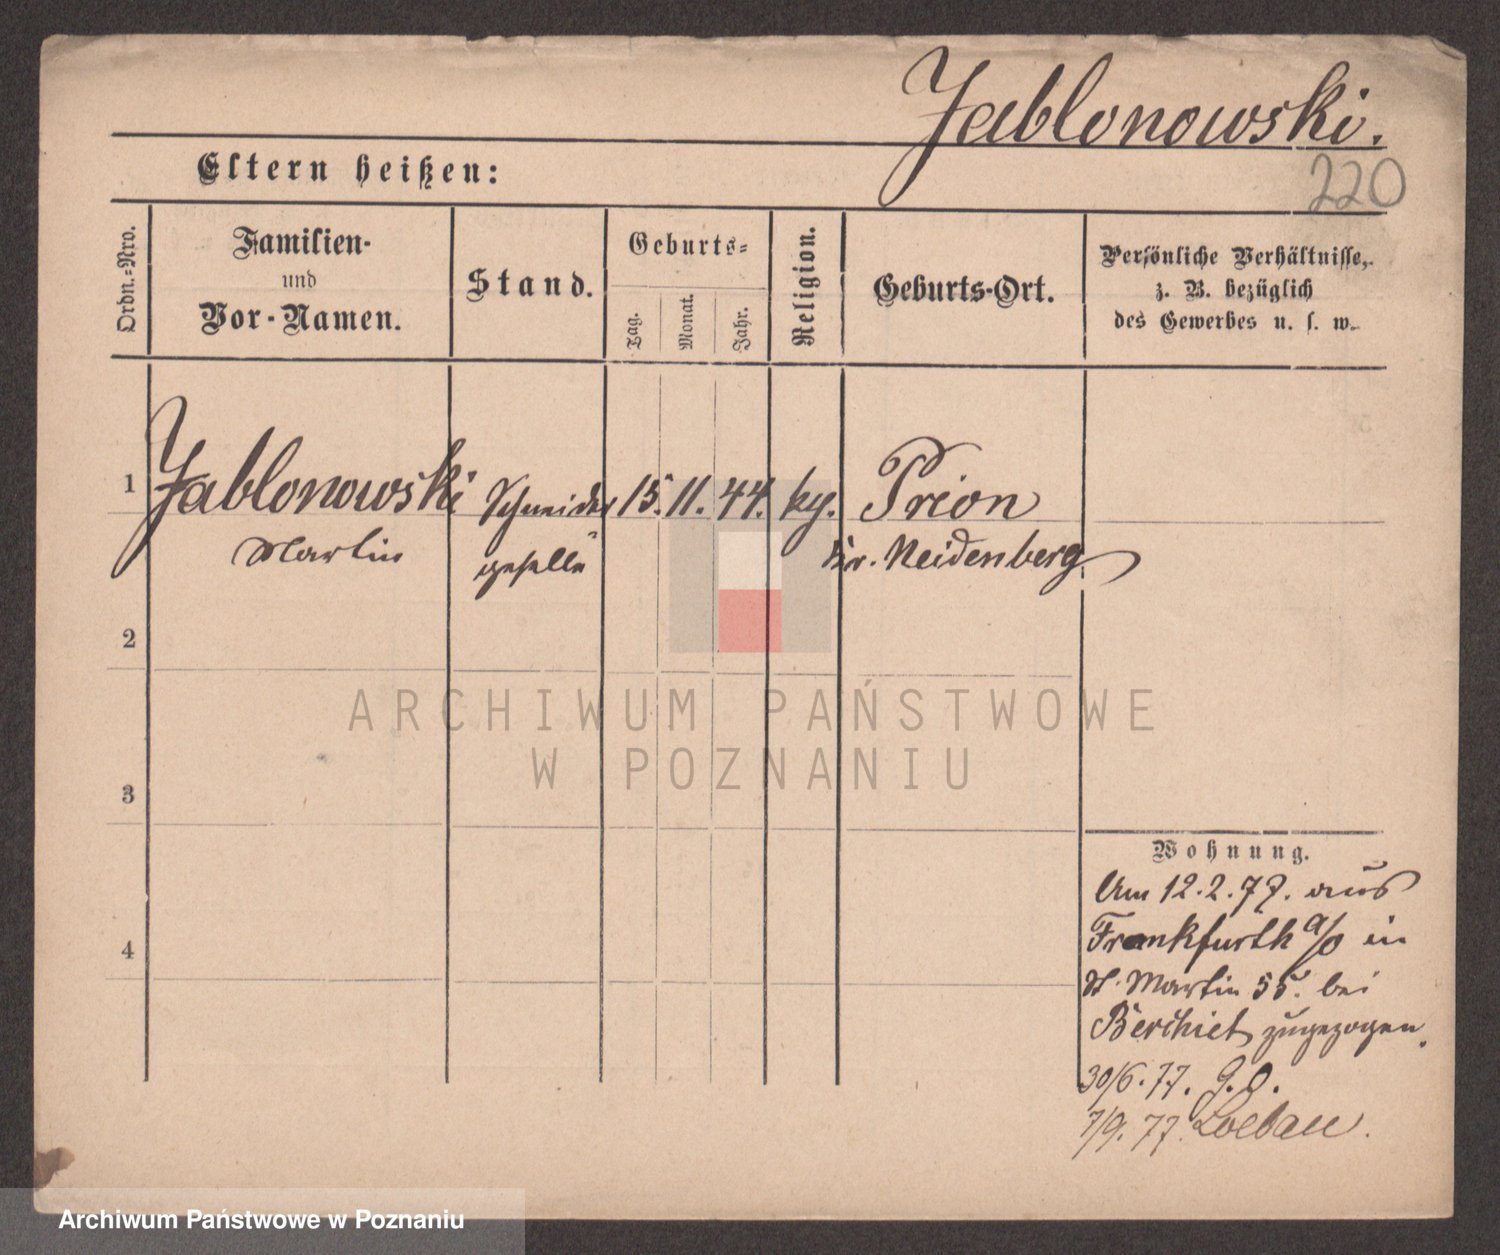 Jablonowski.
220
Eltern heißen:
Ordn.-Nro.
Familien-
und
Vor-Namen.
Stand.
Geburts-
Tag.
Monat.
Jahr.
Religion.
Geburts-Ort.
Persönliche Verhältnisse,
z. B. bezüglich
des Gewerbes u. s. w.
1 Jablonowski Schneider 15. 11. 44. Prion
Martin geselle Kr. Neidenberg
2
3
4
Wohnung.
Am 12.2.77. aus
Frankfurth a/O in
St. Martin 55. bei
zugezogen.
30/6.77.
7/9.77. Loebau.
ARCHIWUM PAŃSTWOWE
W POZNANIU
Archiwum Państwowe w Poznaniu